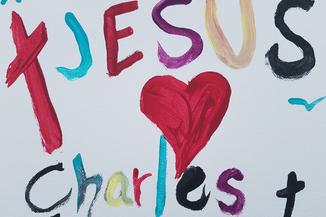 JESUS
Charles